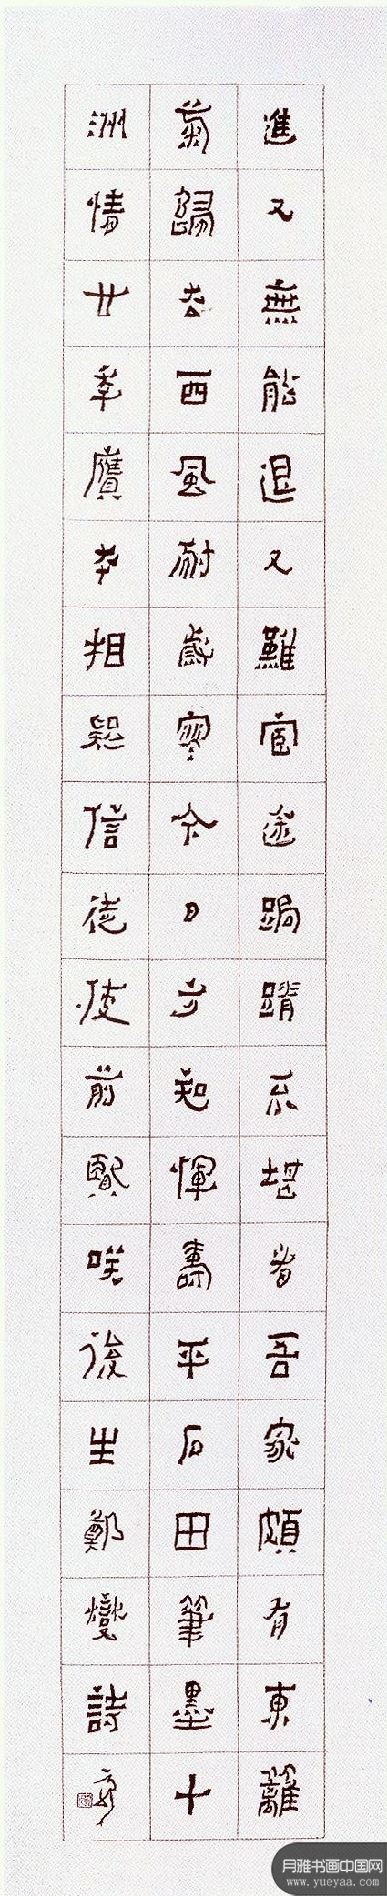 進又無能退又難宦途跼蹐不堪看吾家頗有東籬
菊歸去西風耐歲寒今日方知惲壽平石田筆墨十
洲情廿年贋本相疑信徒使前賢咲後生鄭燮詩
月雅书画中国网
www.yueyaa.com